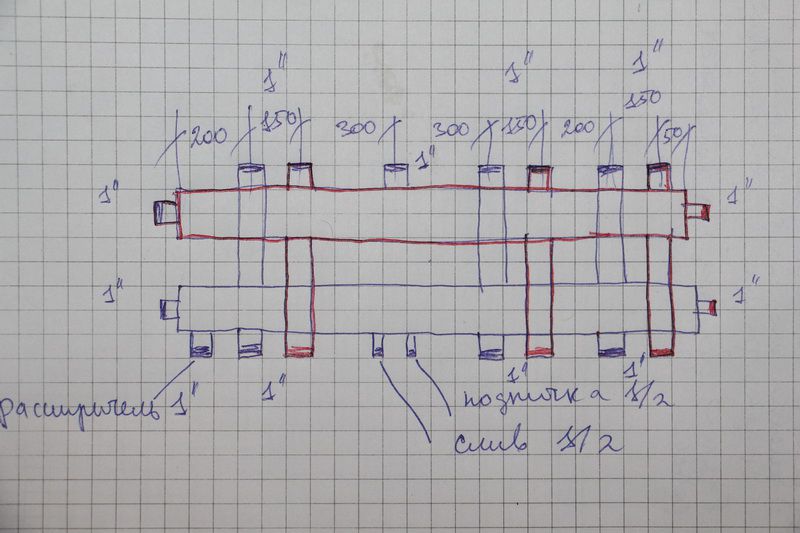 1" 1" 1"
200 150 300 300 150 200 150 50
1" 1" 1"
1" 1"
расширитель 1" 1" 1" 1"
подпитка 1/2
слив 1/2